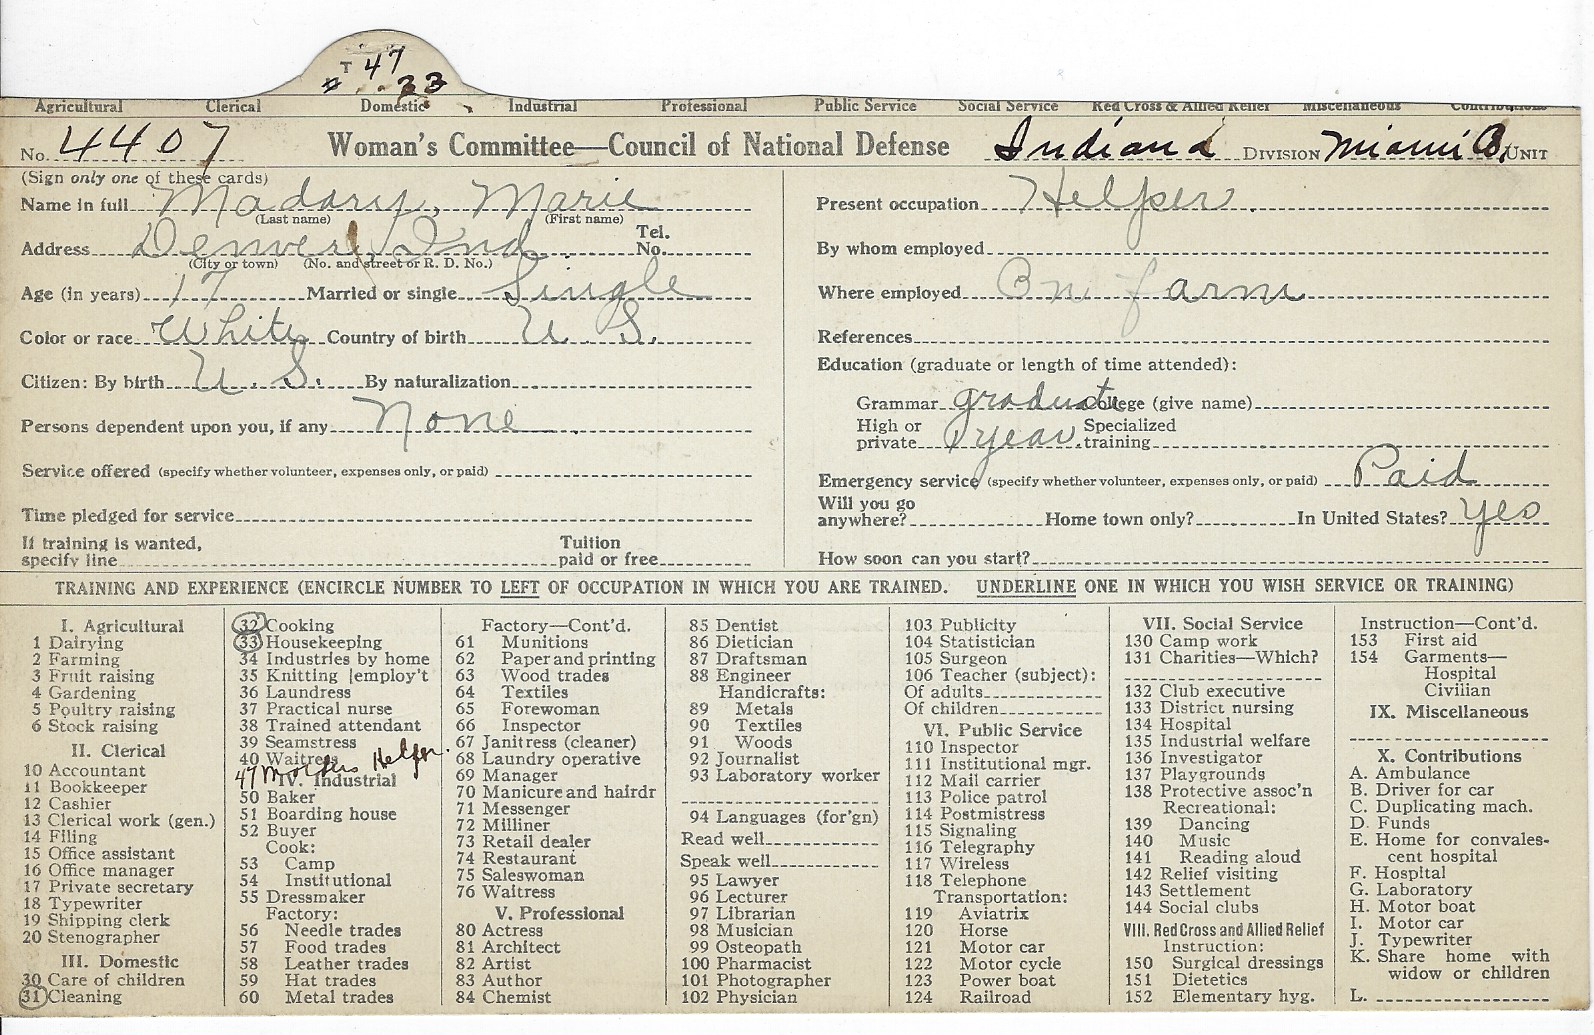 T 47
33
Agricultural Clerical Domestic Industrial Professional Public Service Social Service Red Cross & Allied Relief Miscellaneous Contributions
No. 4407 Woman's Committee—Council of National Defense Indiana DIVISION Miami Co. UNIT
(Sign only one of these cards)
Name in full Madary, Marie
(Last name) (First name)
Address Denver, Ind Tel. No.
(City or town) (No. and street or R. D. No.)
Age (in years) 17 Married or single Single
Color or race White Country of birth U. S.
Citizen: By birth U. S. By naturalization
Persons dependent upon you, if any None
Service offered (specify whether volunteer, expenses only, or paid)
Time pledged for service
If training is wanted, specify line Tuition paid or free
Present occupation Helper
By whom employed
Where employed On farm
References
Education (graduate or length of time attended):
Grammar graduate College (give name)
High or private 1 year. Specialized training
Emergency service (specify whether volunteer, expenses only, or paid) Paid
Will you go anywhere? Home town only? In United States? Yes
How soon can you start?
TRAINING AND EXPERIENCE (ENCIRCLE NUMBER TO LEFT OF OCCUPATION IN WHICH YOU ARE TRAINED. UNDERLINE ONE IN WHICH YOU WISH SERVICE OR TRAINING)
I. Agricultural
1 Dairying
2 Farming
3 Fruit raising
4 Gardening
5 Poultry raising
6 Stock raising
II. Clerical
10 Accountant
11 Bookkeeper
12 Cashier
13 Clerical work (gen.)
14 Filing
15 Office assistant
16 Office manager
17 Private secretary
18 Typewriter
19 Shipping clerk
20 Stenographer
III. Domestic
30 Care of children
31 Cleaning
32 Cooking
33 Housekeeping
34 Industries by home
35 Knitting [employ't
36 Laundress
37 Practical nurse
38 Trained attendant
39 Seamstress
40 Waitress
47 Mothers Helper.
IV. Industrial
50 Baker
51 Boarding house
52 Buyer
Cook:
53 Camp
54 Institutional
55 Dressmaker
Factory:
56 Needle trades
57 Food trades
58 Leather trades
59 Hat trades
60 Metal trades
Factory—Cont'd.
61 Munitions
62 Paper and printing
63 Wood trades
64 Textiles
65 Forewoman
66 Inspector
67 Janitress (cleaner)
68 Laundry operative
69 Manager
70 Manicure and hairdr
71 Messenger
72 Milliner
73 Retail dealer
74 Restaurant
75 Saleswoman
76 Waitress
V. Professional
80 Actress
81 Architect
82 Artist
83 Author
84 Chemist
85 Dentist
86 Dietician
87 Draftsman
88 Engineer
Handicrafts:
89 Metals
90 Textiles
91 Woods
92 Journalist
93 Laboratory worker
94 Languages (for'gn)
Read well
Speak well
95 Lawyer
96 Lecturer
97 Librarian
98 Musician
99 Osteopath
100 Pharmacist
101 Photographer
102 Physician
103 Publicity
104 Statistician
105 Surgeon
106 Teacher (subject):
Of adults
Of children
VI. Public Service
110 Inspector
111 Institutional mgr.
112 Mail carrier
113 Police patrol
114 Postmistress
115 Signaling
116 Telegraphy
117 Wireless
118 Telephone
Transportation:
119 Aviatrix
120 Horse
121 Motor car
122 Motor cycle
123 Power boat
124 Railroad
VII. Social Service
130 Camp work
131 Charities—Which?
132 Club executive
133 District nursing
134 Hospital
135 Industrial welfare
136 Investigator
137 Playgrounds
138 Protective assoc'n
Recreational:
139 Dancing
140 Music
141 Reading aloud
142 Relief visiting
143 Settlement
144 Social clubs
VIII. Red Cross and Allied Relief
Instruction:
150 Surgical dressings
151 Dietetics
152 Elementary hyg.
Instruction—Cont'd.
153 First aid
154 Garments—
Hospital
Civilian
IX. Miscellaneous
X. Contributions
A. Ambulance
B. Driver for car
C. Duplicating mach.
D. Funds
E. Home for convales-
cent hospital
F. Hospital
G. Laboratory
H. Motor boat
I. Motor car
J. Typewriter
K. Share home with
widow or children
L.